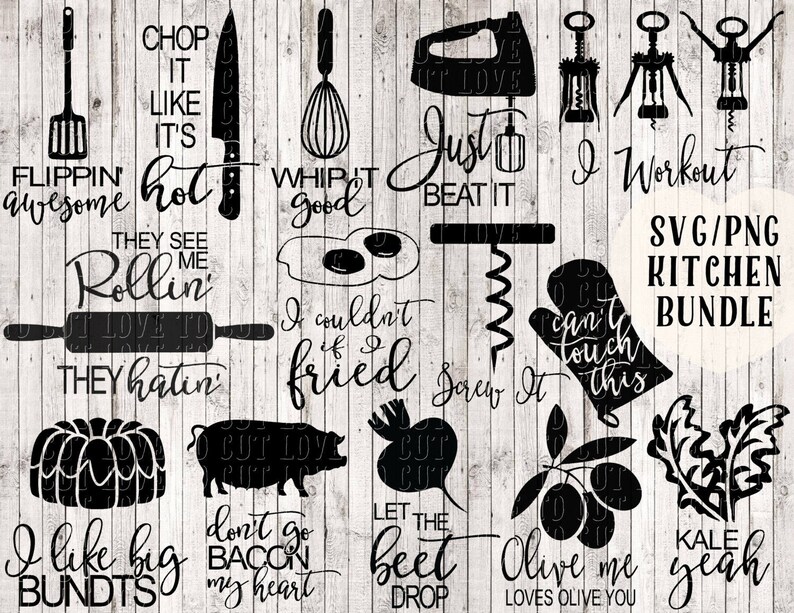 FLIPPIN'
awesome
CHOP
IT
LIKE
IT'S
hot
WHIP IT
good
Just
BEAT IT
I Workout
SVG/PNG
KITCHEN
BUNDLE
THEY SEE
ME
Rollin'
THEY hatin'
I couldn't
if I
fried
Screw It
can't
touch
this
I like big
BUNDTS
don't go
BACON
my heart
LET THE
beet
DROP
Olive me
LOVES OLIVE YOU
KALE
yeah
CUT LOVE TO CUT LOVE TO
CUT LOVE